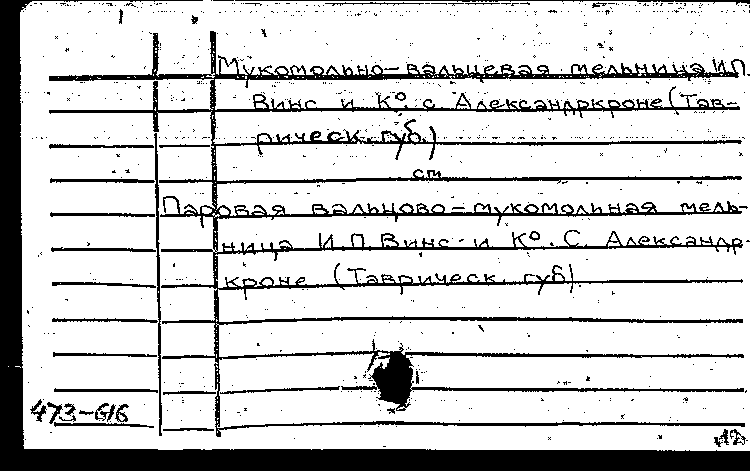 Мукомольно-вальцевая мельница И.П.
Винс и Ко. с. Александркроне (Тав-
рическ. губ.)
см
Паровая вальцово=мукомольная мель-
ница И.П. Винс и Ко. С. Александр-
кроне (Таврическ. губ)
473-616